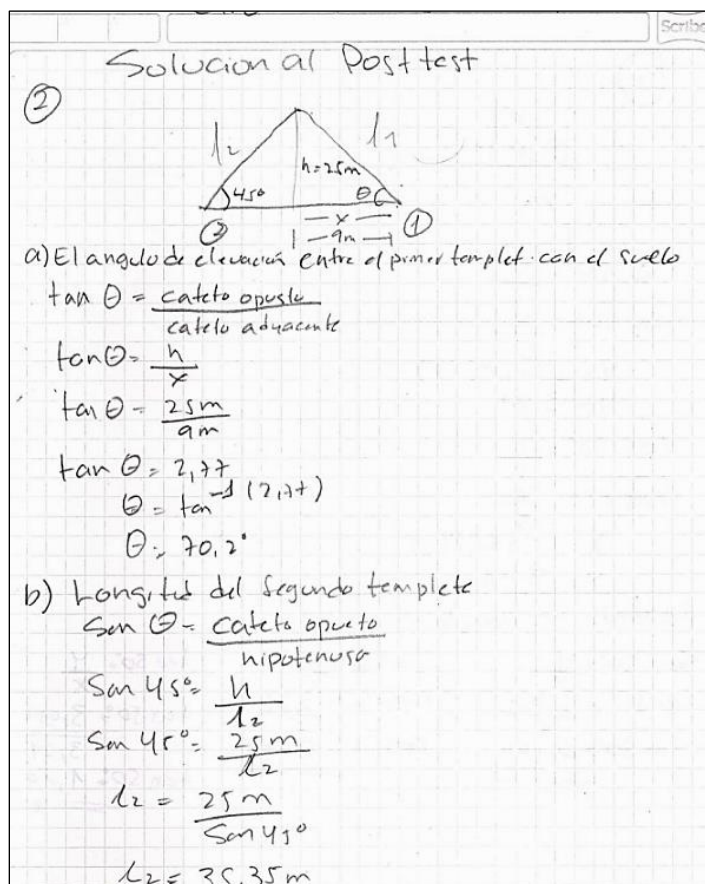 Scribe
Solucion al Posttest
②
l₂
l₁
h=25m
45°
θ
x
② ①
9m
a) El angulo de elevación entre el primer templet con el suelo
tan θ = cateto opuesto
cateto adyacente
tan θ = h
x
tan θ = 25m
9m
tan θ = 2,77
θ = tan⁻¹ (2,77)
θ = 70,2°
b) Longitud del segundo templete
Sen θ = cateto opueto
hipotenusa
Sen 45° = h
l₂
Sen 45° = 25m
l₂
l₂ = 25m
Sen 45°
l₂ = 35,35m